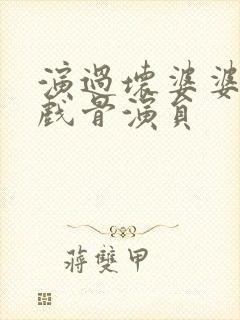 演過壞婆婆
戲骨演員
蔣雙甲